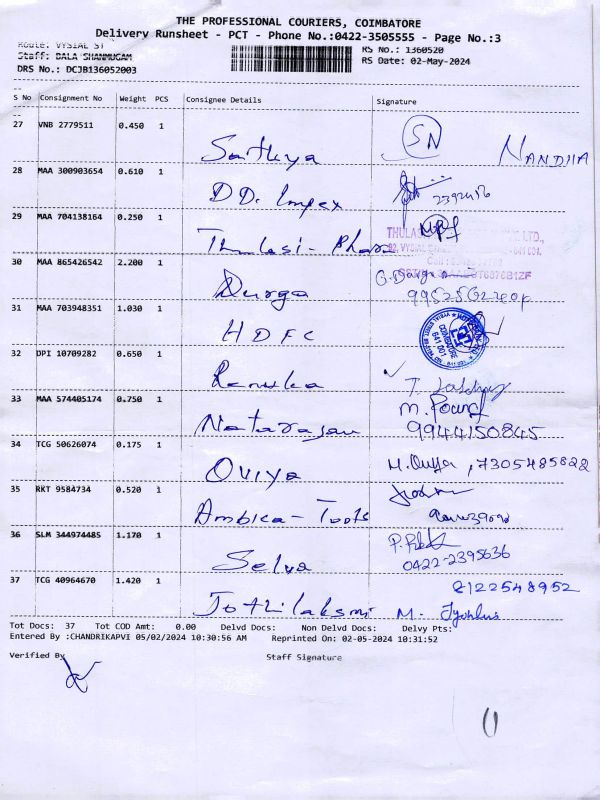 THE PROFESSIONAL COURIERS, COIMBATORE
Delivery Runsheet - PCT - Phone No.:0422-3505555 - Page No.:3
Route: VYSIAL ST
Staff: BALA SHANMUGAM
DRS No.: DCJB136052003
RS No.: 1360520
RS Date: 02-May-2024
S No Consignment No Weight PCS Consignee Details Signature
27 VNB 2779511 0.450 1 Sathya SN NANDHA
28 MAA 300903654 0.610 1 DD. Impex 2392416
29 MAA 704138164 0.250 1 Thulasi - Phar
30 MAA 865426542 2.200 1 Durga G. Durga
31 MAA 703948351 1.030 1 HDFC
COIMBATORE
641 001
32 DPI 10709282 0.650 1 Renuka
33 MAA 574405174 0.750 1 Natarajan M.
9944150845
34 TCG 50626074 0.175 1 Oviya
35 RKT 9584734 0.520 1 Ambica - Tools
36 SLM 344974485 1.170 1 Selva
0422-2395636
37 TCG 40964670 1.420 1 Jothilaksmi M.
8122548952
Tot Docs: 37 Tot COD Amt: 0.00 Delvd Docs: Non Delvd Docs: Delvy Pts:
Entered By :CHANDRIKAPVI 05/02/2024 10:30:56 AM Reprinted On: 02-05-2024 10:31:52
Verified By Staff Signature